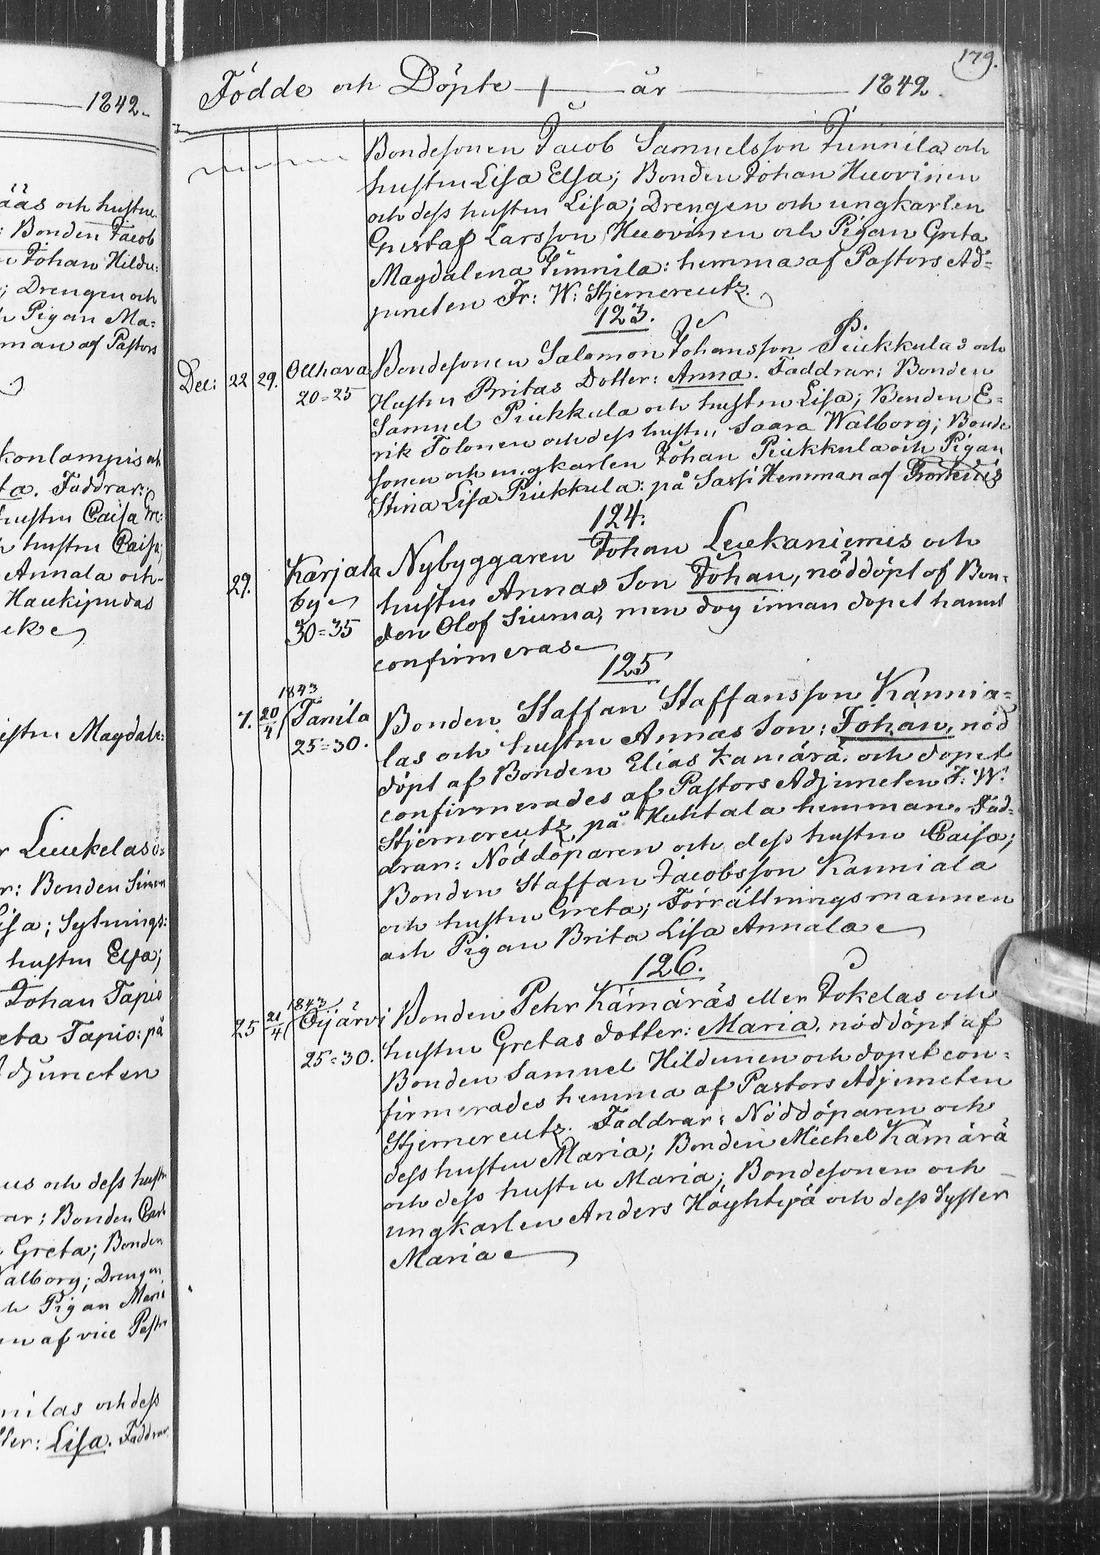 1842.
ääs och hustru
: Bonden Jacob
n Johan Hildu:
; Drengen och
h Pigan Ma:
man af Pastors
konlampis och
ta. Faddrar:
hustru Caisa M:
h hustru Caisa;
Annala och
Haukipudas
Magdale:
r Luukelas
r: Bonden Simon
isa; Sytnings:
hustru Elsa;
Johan Tapio
eta Tapio: på
Adjuncten
us och dess hustru
rar: Bonden Carl
Greta; Bonden
Walborg; Drengen
h Pigan Maria
en af vice Pastor
nilas och dess
ter: Lisa. Faddrar
179.
Födde och Döpte — år — 1842.
Bondesonen Jacob Samuelsson Funnila och
hustru Lisa Elsa; Bonden Johan Huovinen
och dess hustru Lisa; Drengen och ungkarlen
Gustaf Larsson Huovinen och Pigan Greta
Magdalena Funnila: hemma af Pastors Ad=
juncten Fr: W: Stjerncreutz.
123.
Dec: 22 29. Ollhava Bondesonen Salomon Johansson Piukkulas och
20=25 Hustru Britas Dotter: Anna. Faddrar: Bonden
Samuel Piukkula och hustru Lisa; Bonden E=
rik Tolonen och dess hustru Saara Walborg; Bonde
sonen och ungkarlen Johan Piukkula och Pigan
Stina Lisa Piukkula: på Sarsi Hemman af
124.
29. Karjala Nybyggaren Johan Leukaniemis och
by hustru Annas Son Johan, nöddöpt af Bon=
30=35 den Olof Siurua, men dog innan dopet hannt
confirmeras
125
1843
7. 20/4 Tanila Bonden Staffan Staffansson Kannia=
25=30. las och hustru Annas Son: Johan, nöd
döpt af Bonden Elias Kamärä. och dopet
confirmerades af Pastors Adjuncten F. W.
Stjerncreutz på Huhtala hemman. Fad=
drar: Nöddöparen och dess hustru Caisa;
Bonden Staffan Jacobsson Kanniala
och hustru Greta; Förrättningsmannen
och Pigan Brita Lisa Annala
126.
1843
25 21/4 Oijärvi Bonden Pehr Kämäräs eller Jokelas och
25=30. hustru Gretas dotter: Maria. nöddöpt af
Bonden Samuel Hildunen och dopet con=
firmerades hemma af Pastors Adjuncten
Stjerncreutz. Faddrar: Nöddöparen och
dess hustru Maria; Bonden Michel Kämärä
och dess hustru Maria; Bondesonen och
ungkarlen Anders Höyhtyä och dess Syster
Maria